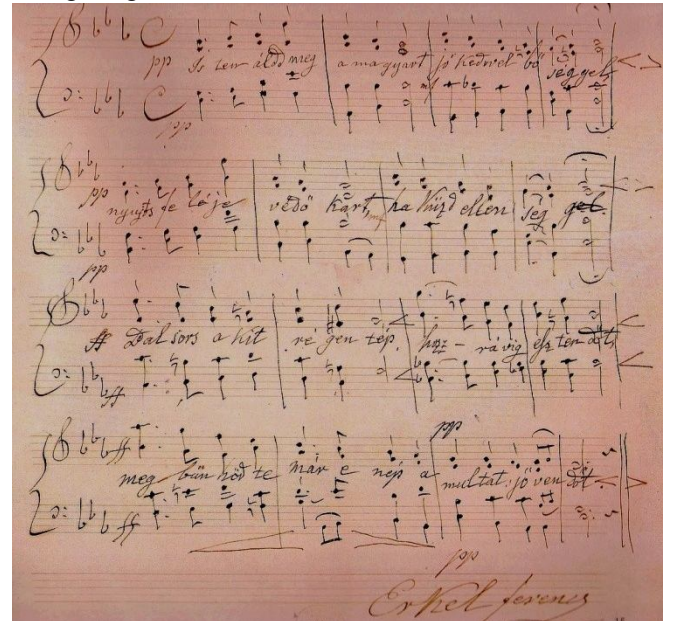 pp Is ten áldd meg a magyart jó kedvvel bő séggel
pp
pp nyujts fe léje védő kart, ha küzd ellen ség gel.
pp
ff Bal sors a kit ré gen tép, hoz - rá vig esz ten dőt,
ff
ff pp
meg bűn hőd te már e nép a multat jö ven dőt
ff
pp
Erkel ferencz